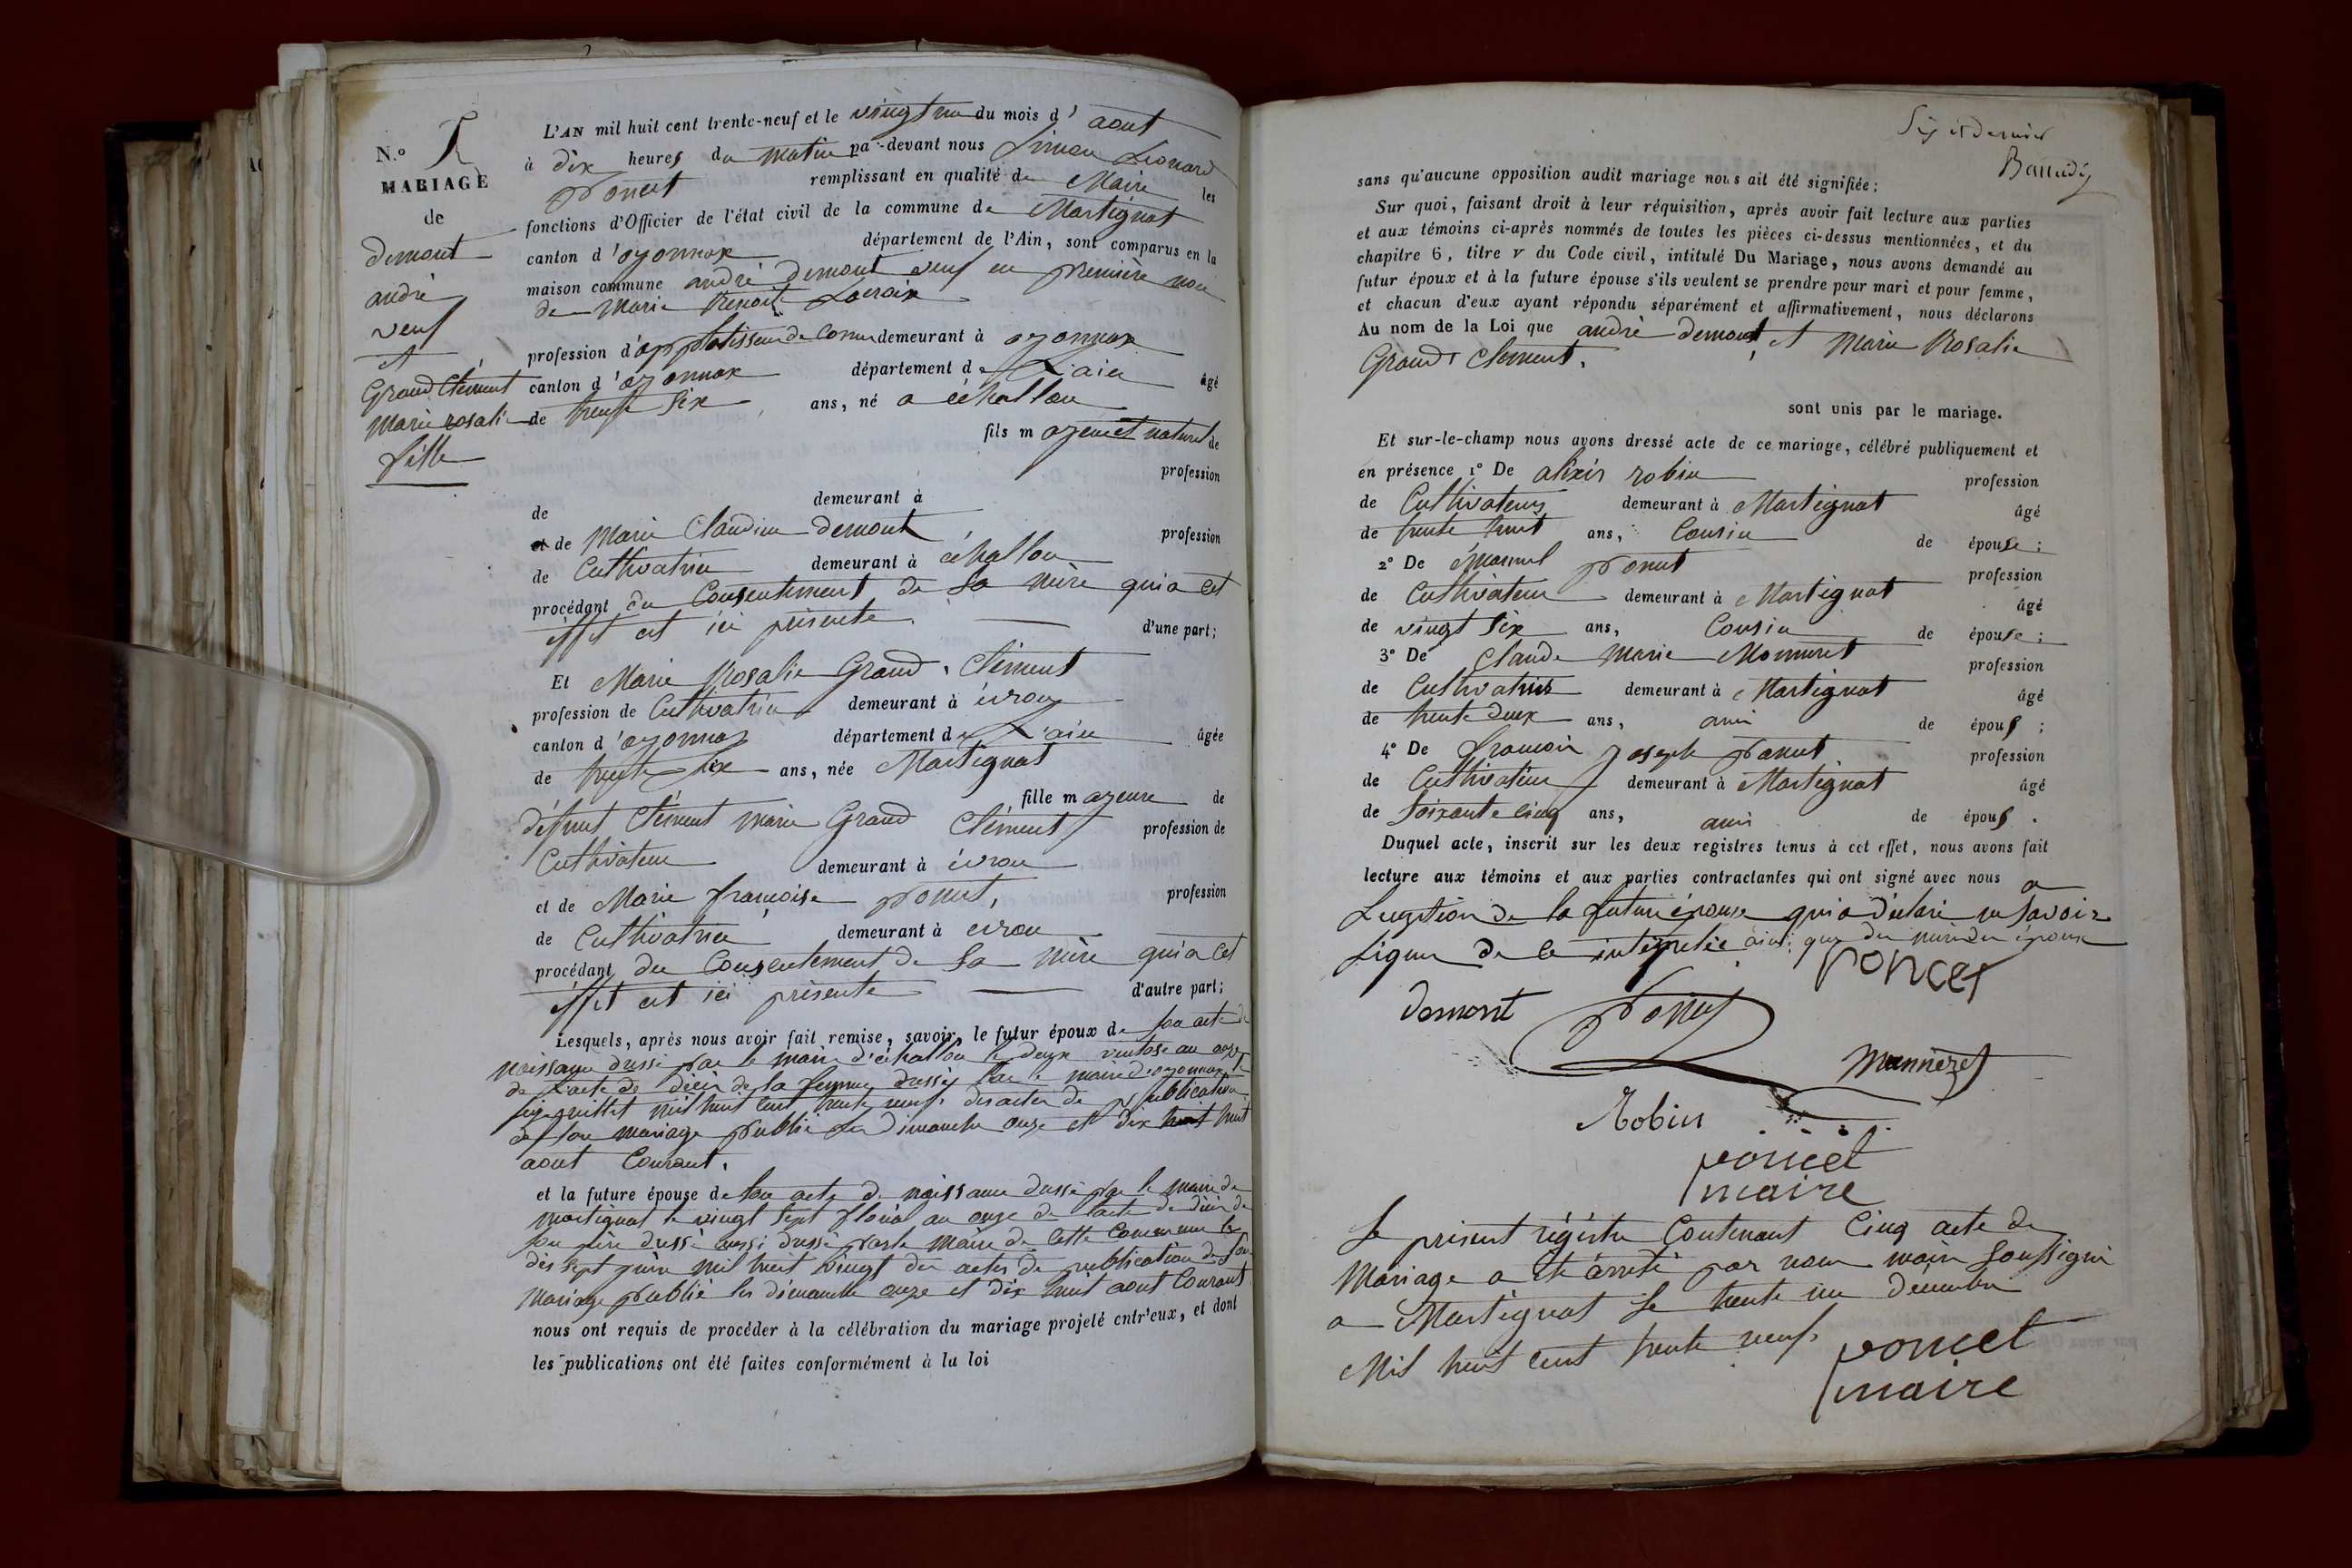 N.o 5
MARIAGE
de
demont
andré
veuf
et
Grand Clément
Marie rosalie
fille
L'AN mil huit cent trente-neuf et le vingt un du mois d' aout
à dix heures du matin pa -devant nous Simon Léonard
Poncet remplissant en qualité de Maire les
fonctions d'Officier de l'état civil de la commune de Martignat
canton d'oyonnax département de l'Ain, sont comparus en la
maison commune andré demont veuf en première noce
de Marie Benoit Lacroix
profession d'applatisseur de corne demeurant à oyonnax
canton d'oyonnax département de L'ain âgé
de trente six ans, né a échallon
fils majeur et naturel de
profession
de demeurant à
et de Marie Claudine demont profession
de Cultivatrice demeurant à échallon
procédant du Consentement de sa mère qui a cet
effet est ici présente d'une part;
Et Marie Rosalie Grand Clément
profession de Cultivatrice demeurant à évron
canton d'oyonnax département de L'ain âgée
de trente six ans, née Martignat
fille majeure de
défunt Clément marie Grand Clément profession de
Cultivateur demeurant à évron
et de Marie françoise Poncet, profession
de Cultivatrice demeurant à evron
procédant du Consentement de sa mère qui a cet
effet est ici présente d'autre part;
Lesquels, après nous avoir fait remise, savoir, le futur époux de son acte de
naissance dressé par le maire d'échallon le deux ventose an onze
de l'acte de décès de sa femme dressé par le maire d'oyonnax le
juillet mil huit cent trente neuf. des actes de publication
de son mariage publié les dimanche onze et dix huit
aout Courant.
et la future épouse de son acte de naissance dressé par le maire de
martignat le vingt sept floréal an onze de l'acte de décès de
son père dressé aussi dressé par le maire de cette Commune le
dix sept juin mil huit vingt des actes de publication de son
mariage publié les dimanche onze et dix huit aout Courant
nous ont requis de procéder à la célébration du mariage projeté entr'eux, et dont
les publications ont été faites conformément à la loi
Six et dernier
sans qu'aucune opposition audit mariage nous ait été signifiée;
Sur quoi, faisant droit à leur réquisition, après avoir fait lecture aux parties
et aux témoins ci-après nommés de toutes les pièces ci-dessus mentionnées, et du
chapitre 6, titre v du Code civil, intitulé Du Mariage, nous avons demandé au
futur époux et à la future épouse s'ils veulent se prendre pour mari et pour femme,
et chacun d'eux ayant répondu séparément et affirmativement, nous déclarons
Au nom de la Loi que andré demont, et Marie Rosalie
Grand Clément.
sont unis par le mariage.
Et sur-le-champ nous avons dressé acte de ce mariage, célébré publiquement et
en présence 1o De alixis robin profession
de Cultivateur demeurant à Martignat âgé
de trente huit ans, Cousin de épouse;
2o De émanuel Poncet profession
de Cultivateur demeurant à Martignat âgé
de vingt six ans, Cousin de épouse;
3o De Claude Marie Monneret profession
de Cultivateur demeurant à Martignat âgé
de trente deux ans, ami de épous;
4o De françois joseph Poncet profession
de Cultivateur demeurant à Martignat âgé
de soixante cinq ans, ami de épous.
Duquel acte, inscrit sur les deux registres tenus à cet effet, nous avons fait
lecture aux témoins et aux parties contractantes qui ont signé avec nous a
de la future épouse qui a déclaré ne savoir
signer de ce ainsi que du époux
Poncet
demont
Poncet
Monneret
Robin
poncet
maire
Le présent régistre Contenant Cinq acte de
Mariage a été arrêté par nous maire soussigné
a Martignat le trente un décembre
Mil huit cent trente neuf.
poncet
maire